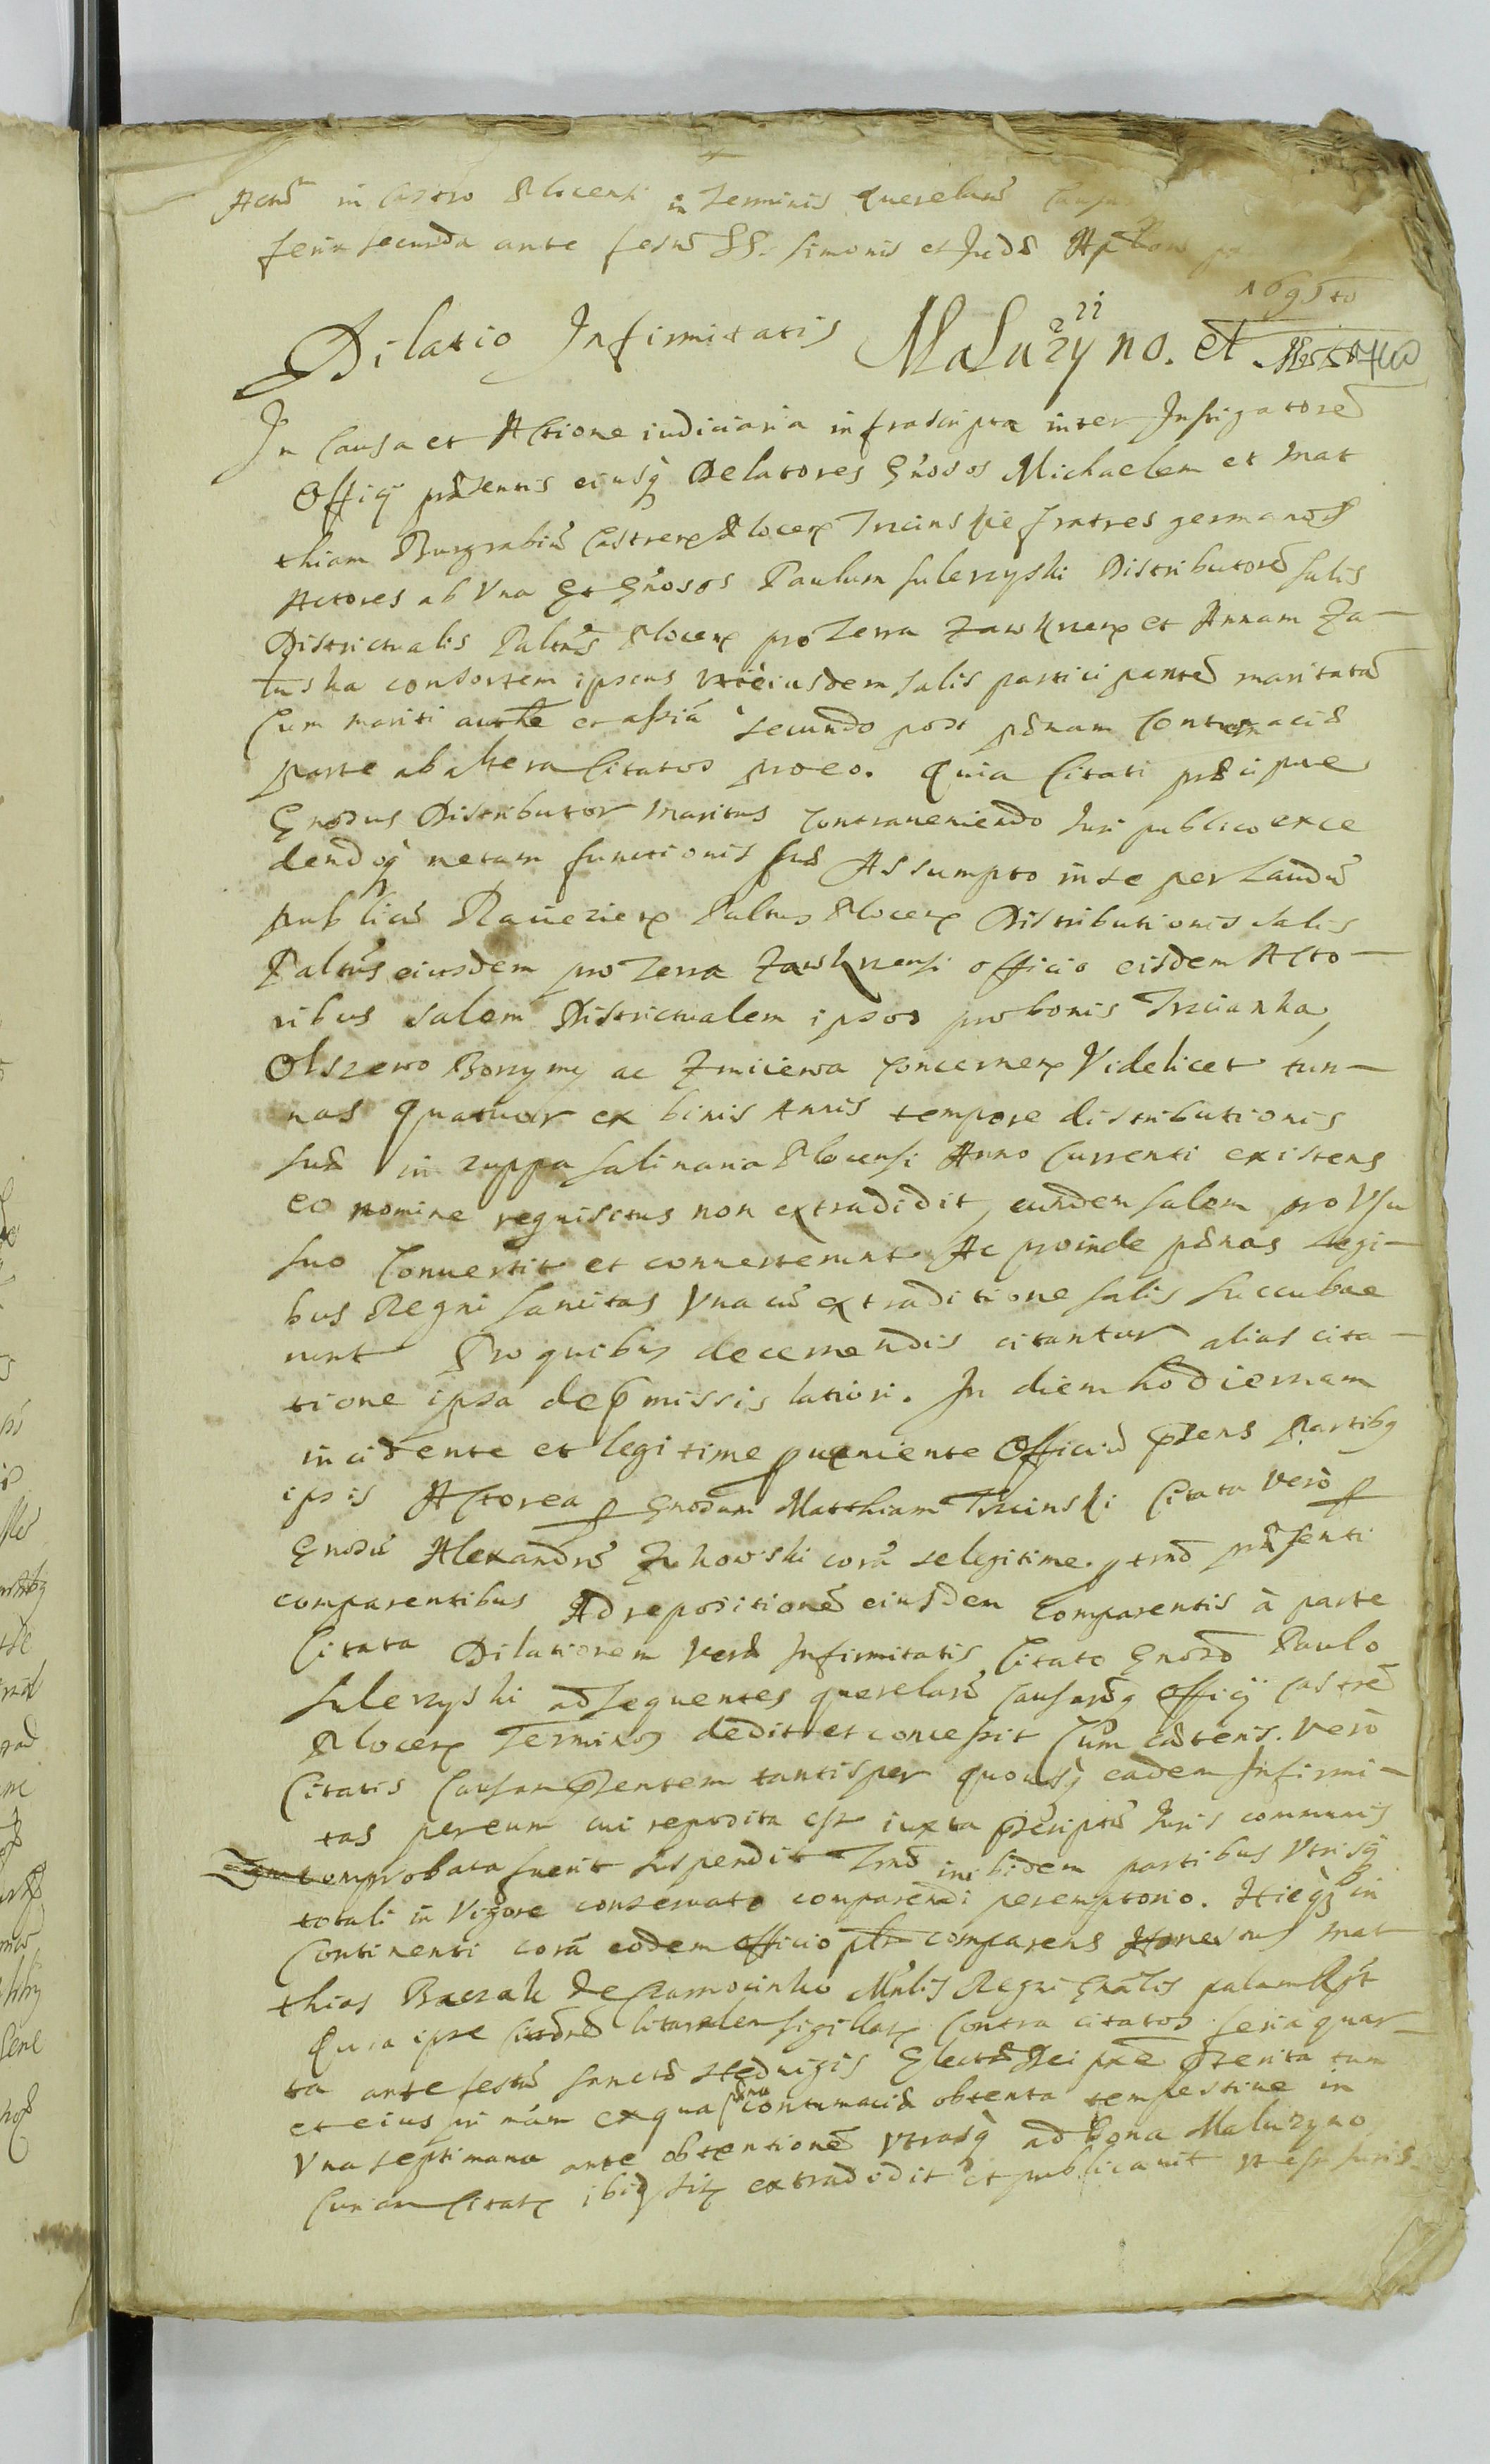 Actũ in Castro Plocensi in Terminis Querelarũ
feria secunda ante festũ SS. Simonis et Judæ
Dilatio Infirmitatis Maluzyno. et
In Causa et Actione iudiciaria infrascripta inter Instigatorẽ
Officij præsentis eiusq̃ Delatores Gñosos Michaelem et Mat
thiam Burgrabiũ Castren Plocen Trcinskie fratres germanos
Actores ab Vna Et Gñosos Paulum Sulerzyski Distributorẽ Salis
Districtualis Paltñs Plocen pro Terra Zawkrzen et Annam Za-
luska consortem ipsius vti eiusdem salis participantẽ maritatã
Cum mariti aucthe et assiã secundo post pænam Contumaciæ
parte ab altera Citatos pro eo. Quia Citati præcipue
Gnosus Distributor Maritus Contraueniendo Iuri publico exce
dendoq̃ metam functionis suæ Assumpto in se per Laudũ
publicũ Raciezien Paltus Plocen Distributionis salis
Paltũs eiusdem pro Terra Zawkrzensi officio eisdem Acto-
ribus salem Districtualem ipsos pro bonis Trzcianka,
Olszewo Borzymy ac Zmiiewa Concernen Videlicet tun-
nas quatuor ex binis Annis tempore distributionis
suæ in zuppa salinaria Plocensi Anno Currenti existens
eo nomine requisitus non extradidit, eundem salem pro Vsu
suo Conuertit et conuerterunt Ac proinde pænas Legi-
bus Regni sancitas Vna cũ extraditione salis succubue
runt Pro quibus decernendis citantur alias cita-
tione ipsa de p̃missis latiori. In diem hodiernam
incidente et legitime pueniente Officiũ p̃sens Partibq
ipsis Actorea p Gnosum Matthiam Trcinski Citata verò p
Gnosũ Alexandrũ Zukowski corã se legitime. ptmõ præsenti
comparentibus Ad repositionẽ eiusdem Comparentis à parte
Citata Dilationem Veræ Infirmitatis Citato Gnoso Paulo
Sulerzyski ad sequentes querelarũ Causarũq officij castreñ
Plocen Terminos dedit et concessit Cum cæteris. verò
Citatis Causam p̃sentem tantisper quousq̃ eadem Infirmi-
tas per eum cui reposita est iuxta p̃scriptũ Iuris communis
comprobata fuerit suspendit Tmõ inibidem partibus Vtrisq̃
totali in Vigore conseruato comparendi peremptorio. Hicq̃ in
Continenti corã eodem officio pltr comparens Honestus Mat
thias Baczak de Mnlis Regni Gñalis palam Rct
Quia ipse literalem sigillatam Contra citatos feria quar-
ta ante festũ Sanctæ Heduigis Electæ Dei
et eius in ex qua contumacia obtenta tempestiue in
Vna septimana ante obtentionẽ Vtrasq̃ ad bona Maluzyno
extradidit et publicauit vt est Iuris